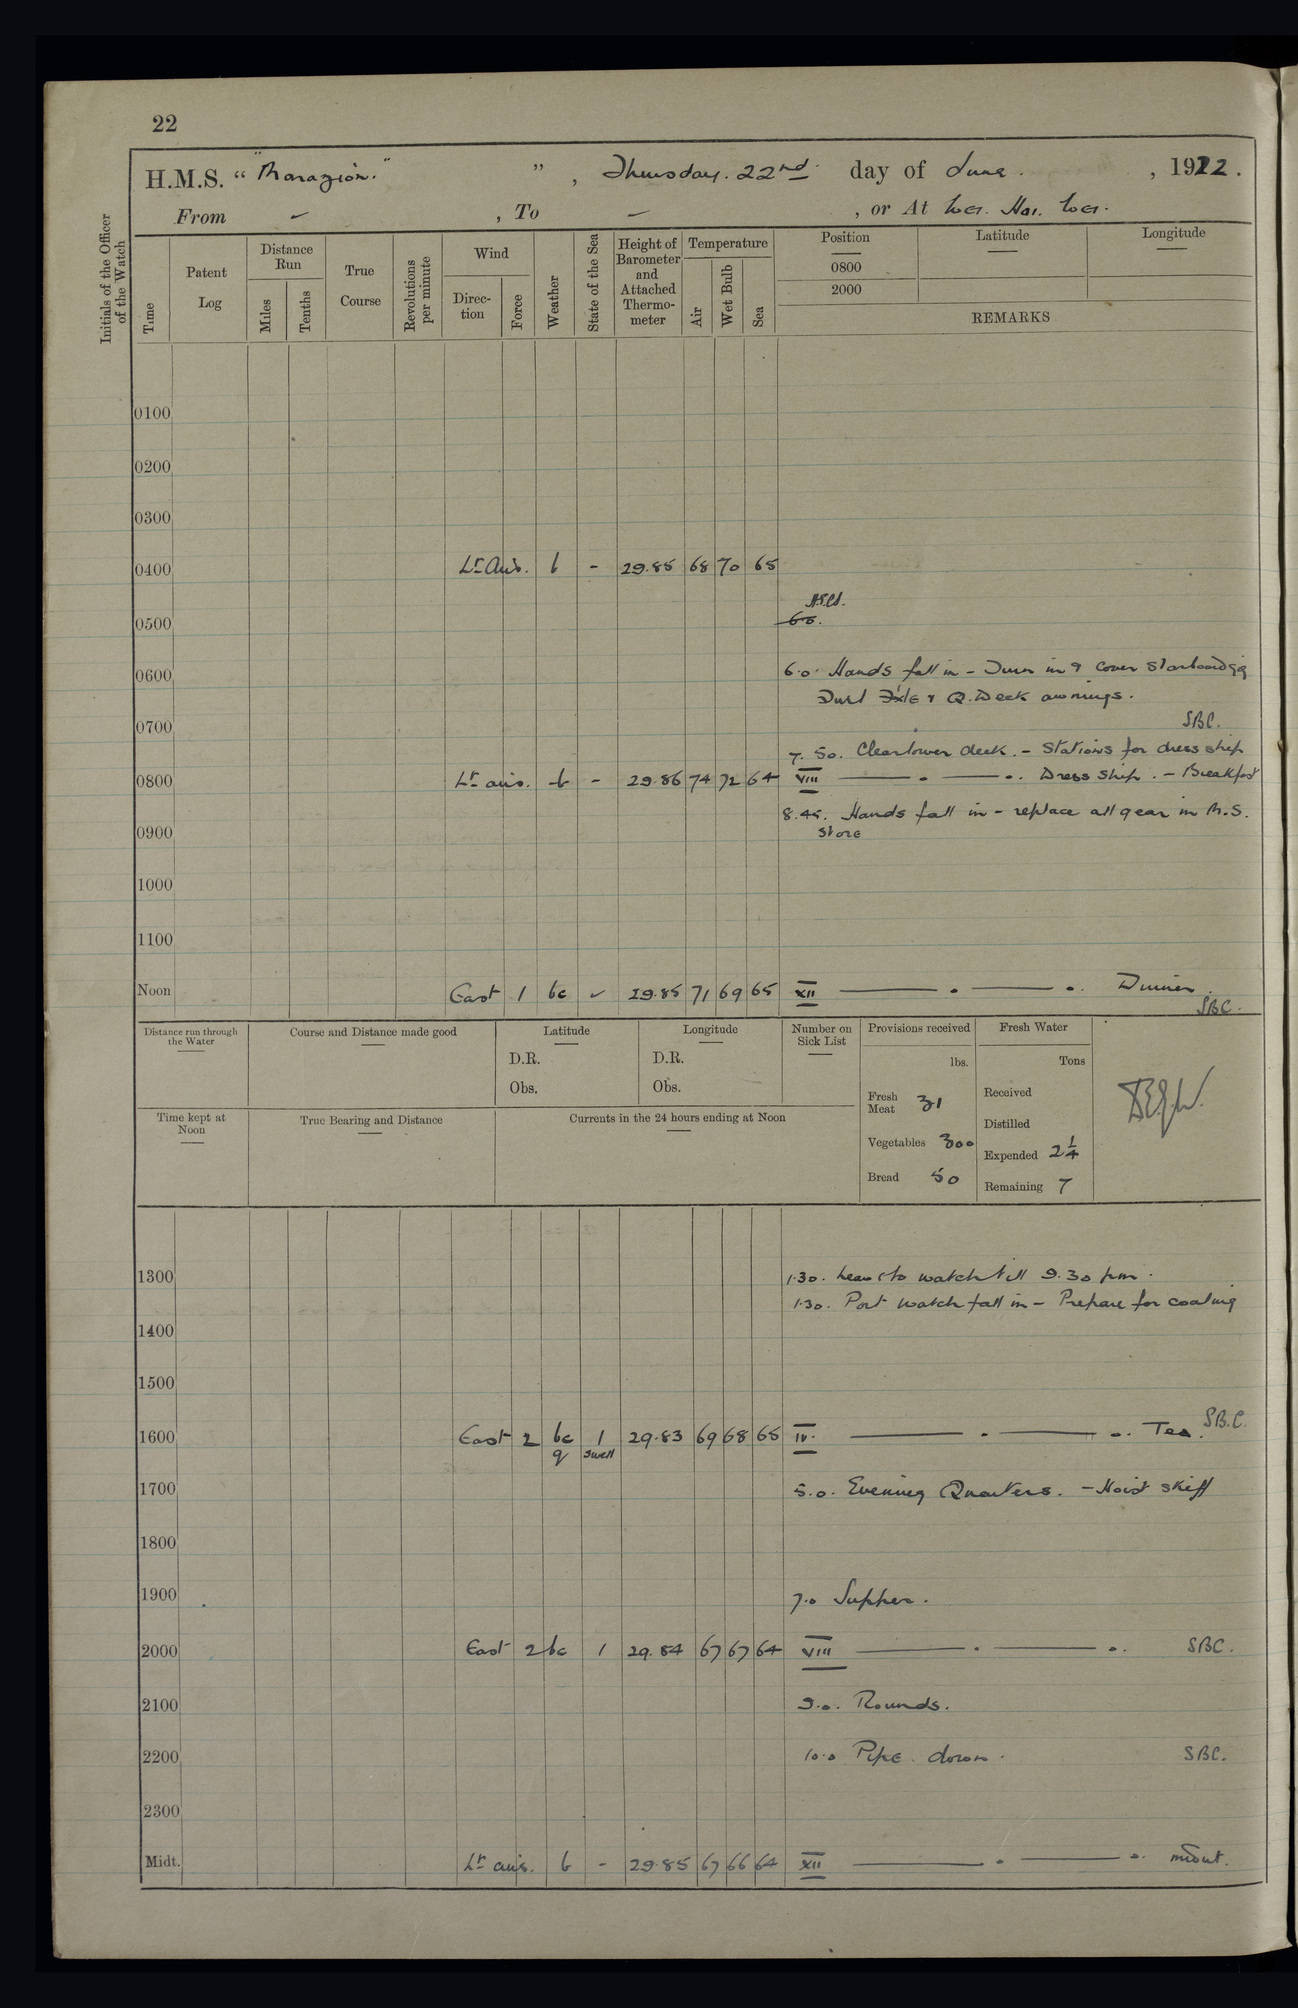 22
H.M.S. “ "Marazion." ” , Thursday. 22nd. day of June. , 1922.
From – , To – , or At Wei. Hai. Wei.
Initials of the Officer of the Watch
Time
Patent Log
Distance Run
Miles
Tenths
True Course
Revolutions per minute
Wind
Direc-tion
Force
Weather
State of the Sea
Height of Barometer and Attached Thermo-meter
Temperature
Air
Wet Bulb
Sea
Position
Latitude
Longitude
0800
2000
REMARKS
0100
0200
0300
0400 Lt airs. b - 29.85 68 70 65
6.0.
0500
0600 6.0. Hands fall in - Turn in & cover starboard gig
Furl Fx'le & Q. Deck awnings.
0700 SBC.
7.50. Clear lower deck. - Stations for dress ship
0800 Lt airs. b - 29.86 74 72 64 VIII Dress Ship. - Breakfast
8.45. Hands fall in - replace all gear in M.S.
0900 store
1000
1100
Noon East 1 bc ✓ 29.85 71 69 65 XII Dinner.
SBC.
Distance run through the Water
Course and Distance made good
Latitude
D.R.
Obs.
Longitude
D.R.
Obs.
Number on Sick List
Provisions received
lbs.
Fresh Meat 31
Vegetables 300
Bread 50
Fresh Water
Tons
Received
Distilled
Expended 2 1/4
Remaining 7
Time kept at Noon
True Bearing and Distance
Currents in the 24 hours ending at Noon
1300 1.30. Leave to watch till 9.30 pm.
1.30. Port watch fall in - Prepare for coaling
1400
1500
1600 East 2 bc q 1 swell 29.83 69 68 65 IV. Tea. SBC.
1700 5.0. Evening Quarters. - Hoist skiff
1800
1900 7.0 Supper.
2000 East 2 bc 1 29.84 67 67 64 VIII SBC.
2100 9.0. Rounds.
2200 10.0 Pipe down. SBC.
2300
Midt. Lt airs. b - 29.85 67 66 64 XII midnt.